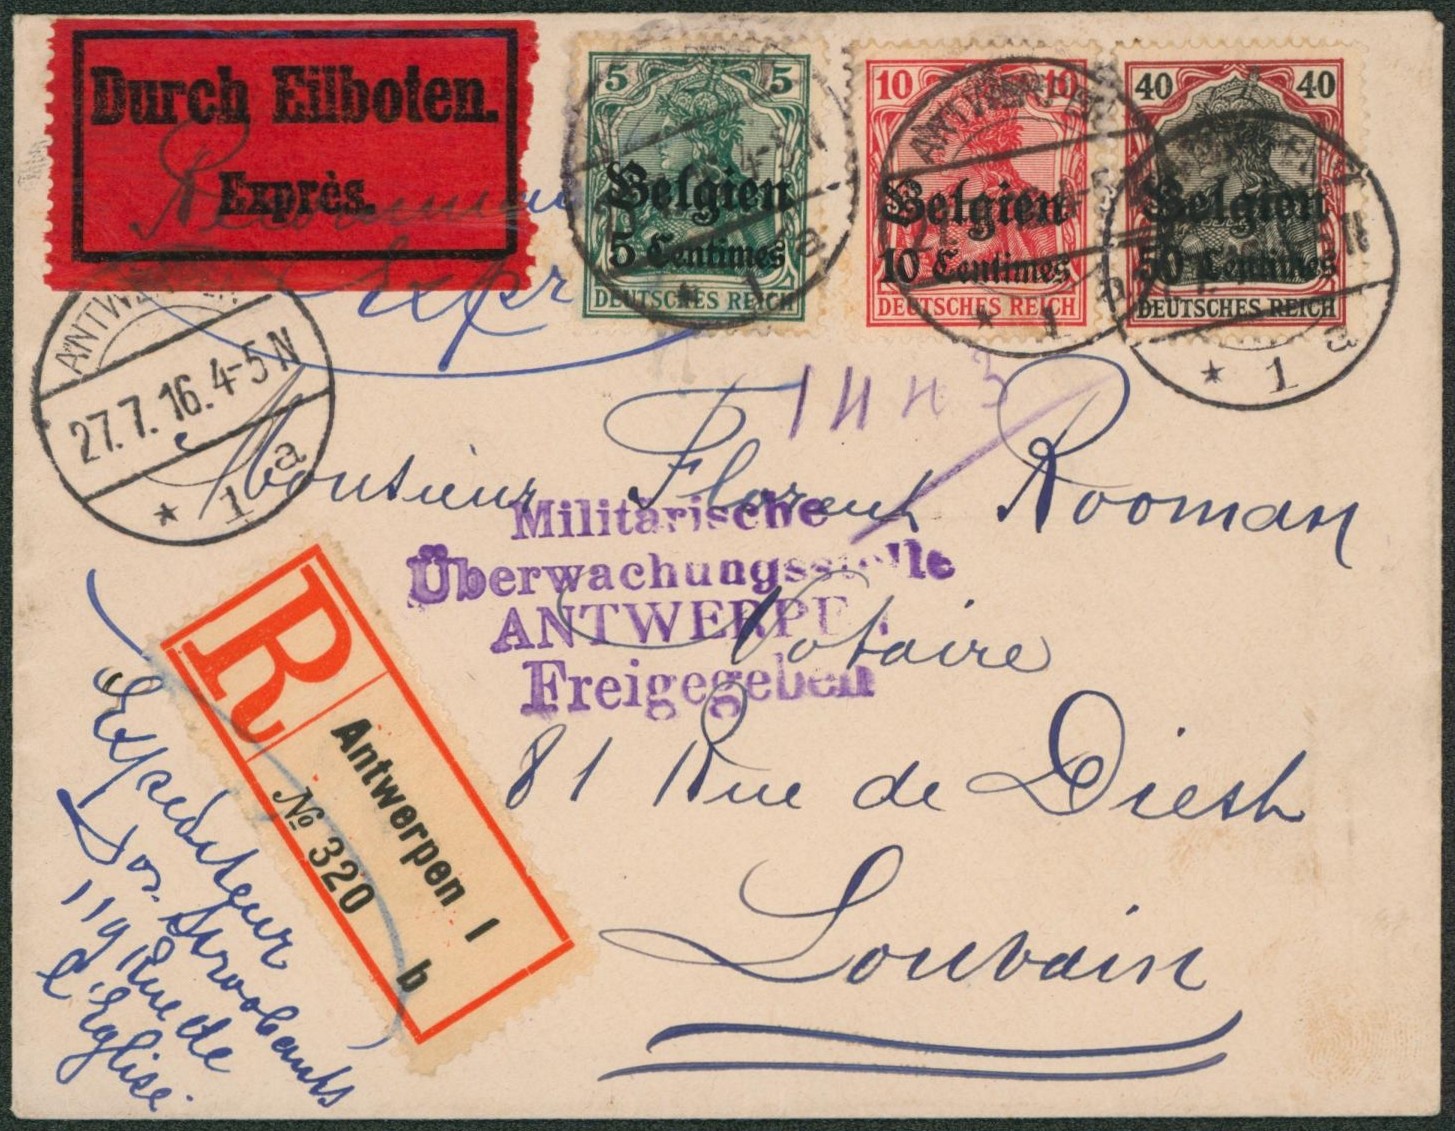 Durch Eilboten.
Exprès.
5 5
Belgien
5 Centimes
DEUTSCHES REICH
10 10
Belgien
10 Centimes
DEUTSCHES REICH
40 40
Belgien
50 Centimes
DEUTSCHES REICH
ANTWERPEN
27.7.16. 4-5 N
* 1 a
ANTWERPEN
* 1 b
* 1 a
Expr
1443
Monsieur Florent Rooman
Notaire
81 Rue de Diest
Louvain
Militärische
Überwachungsstelle
ANTWERPEN
Freigegeben
R
Antwerpen 1
b
No 320
Expediteur
Jos. Stroobants
119 Rue de
l'Eglise